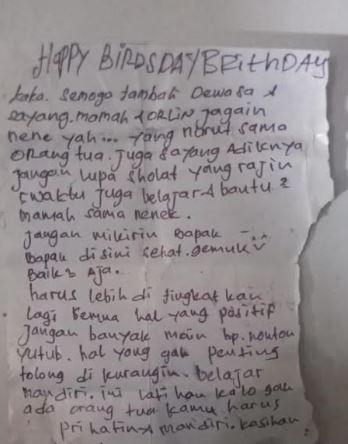 HAPPY BIRDSDAY/BRithDAY
kaka. semoga tambah Dewasa &
sayang. mamah & ORLIN jagain
nene yah... yang nurut sama
orang tua. Juga sayang Adiknya
jangan lupa sholat yang rajin
5 waktu juga belajar & bantu 2
mamah sama nenek.
jangan mikirin Bapak
Bapak disini sehat. gemuk
Baik 2 Aja.
harus lebih di tingkat kan
lagi semua hal yang positif
jangan banyak main hp. nonton
yutub. hal yang gak penting
tolong di kurangin. belajar
mandiri. ini latihan kalo gak
ada orang tua kamu harus
prihatin & mandiri. kasihan